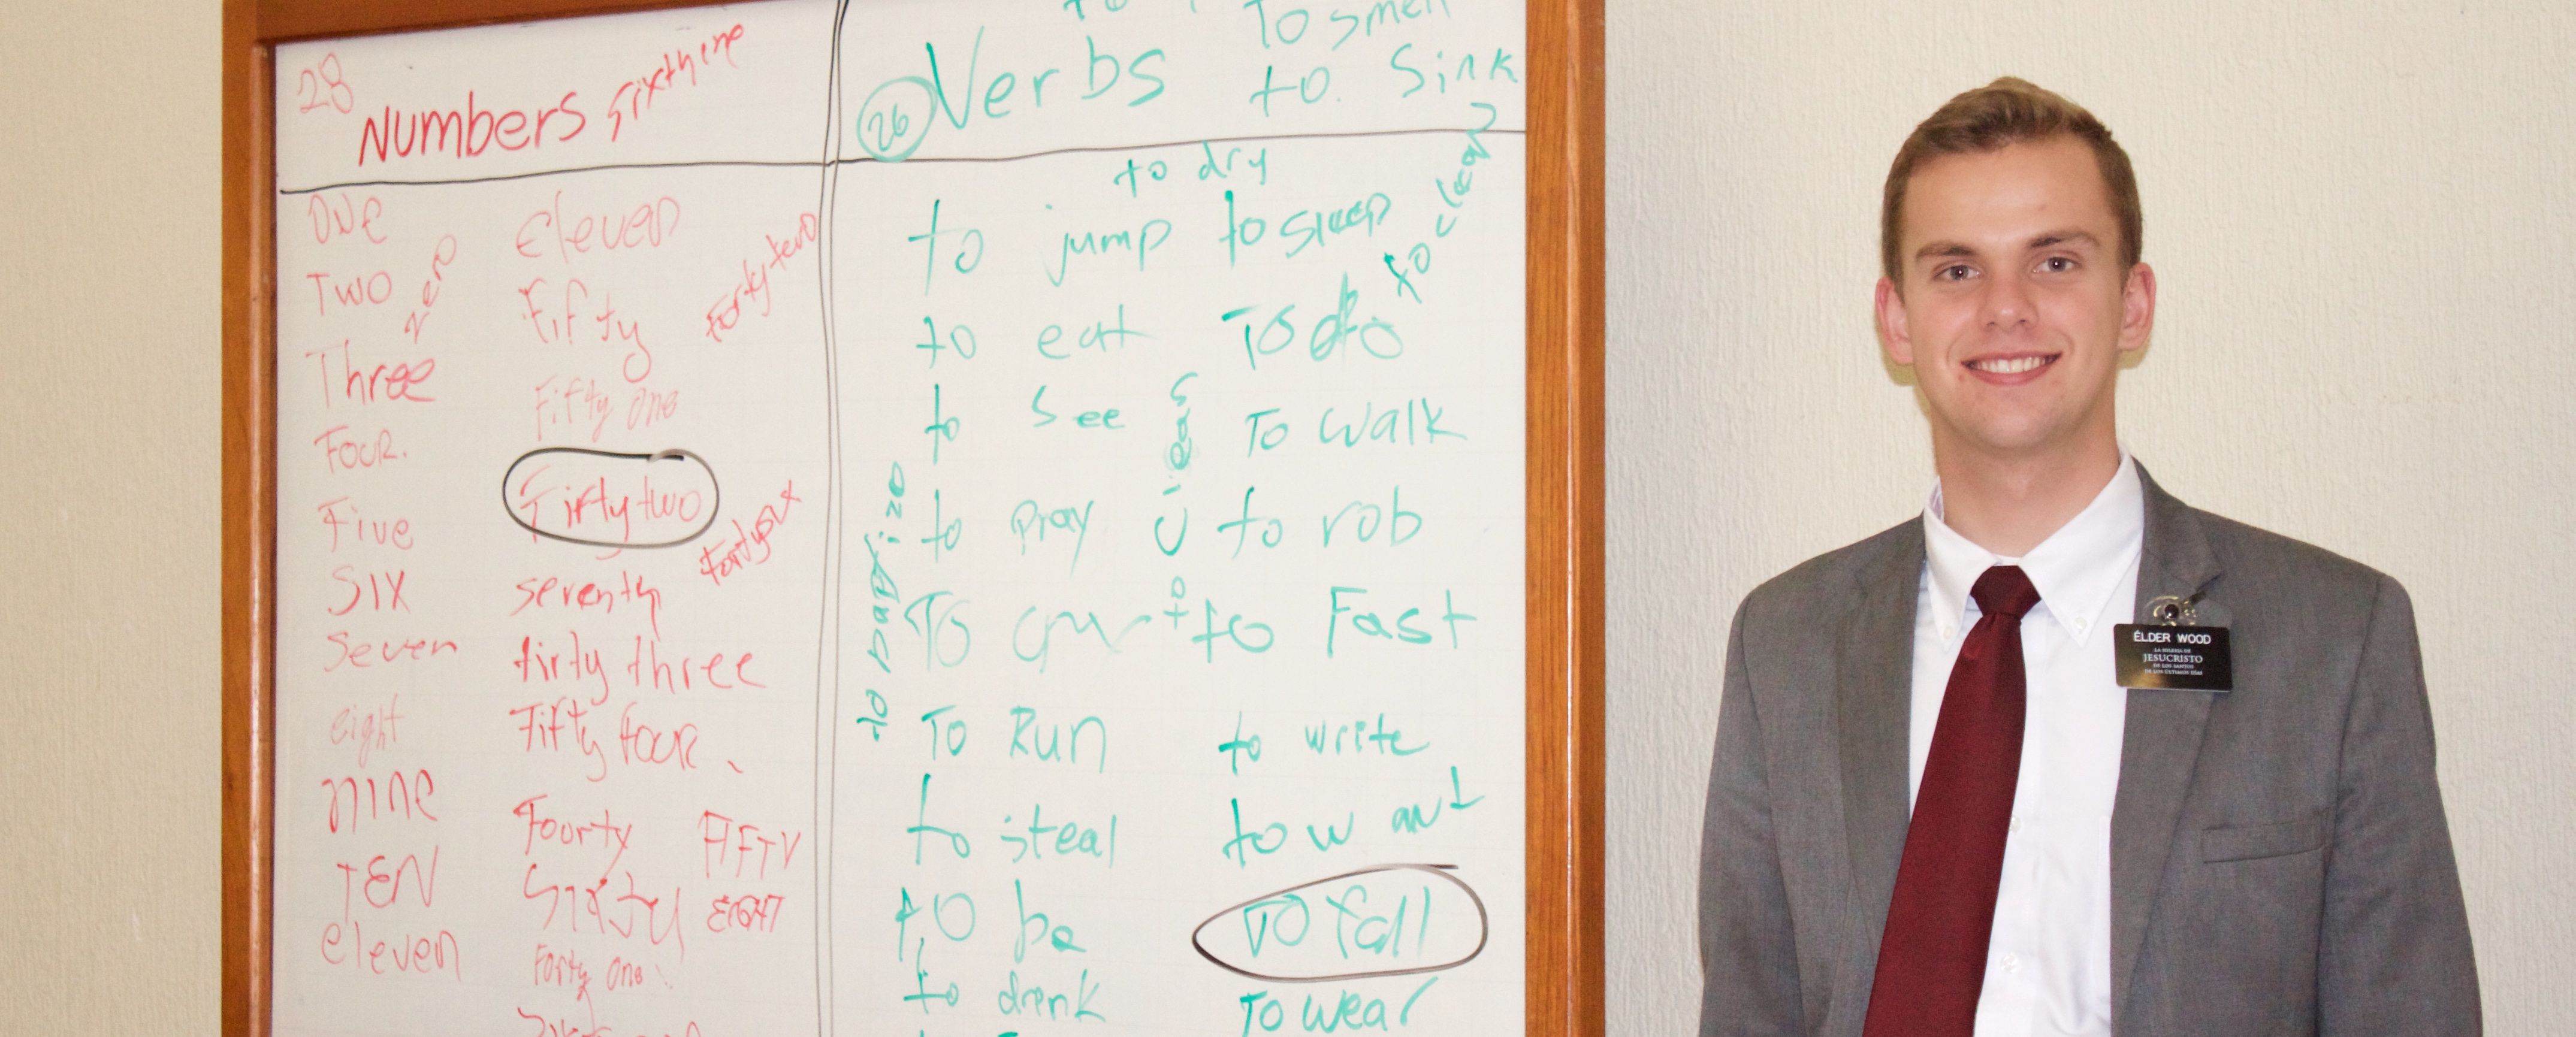 28 Numbers sixthine
one
Two
zero
Three
Four.
Five
SIX
Seven
eight
nine
TEN
eleven
eleven
fifty
fifty one
fiftytwo
seventy
tirty three
Fifty four
Fourty
sixty
Forty one
Fortytwo
FIFTY
EIGHT
to smell
26 Verbs
to sink
to dry
to jump
to eat
to see
to pray
TO
TO RUN
to steal
to be
to drink
to baptize
to clean
to sleep
TO do
To clean
TO walk
to rob
to Fast
to write
to want
TO fall
TO wear
ÉLDER WOOD
LA IGLESIA DE
JESUCRISTO
DE LOS SANTOS
DE LOS ÚLTIMOS DÍAS